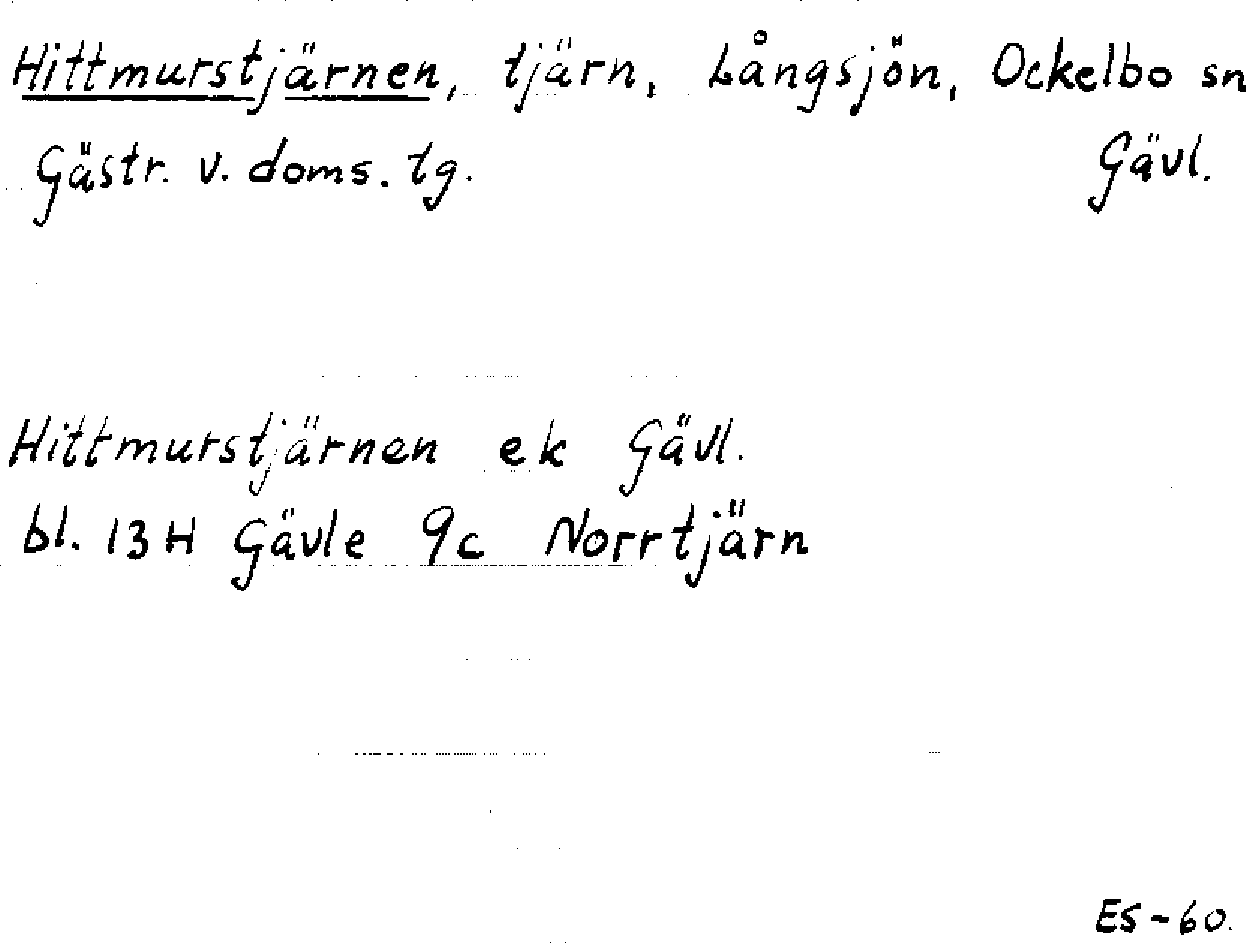 Hittmurstjärnen, tjärn, Långsjön, Ockelbo sn
Gästr. v. doms. tg. Gävl.
Hittmurstjärnen ek Gävl.
bl. 13H Gävle 9c Norrtjärn
ES-60.